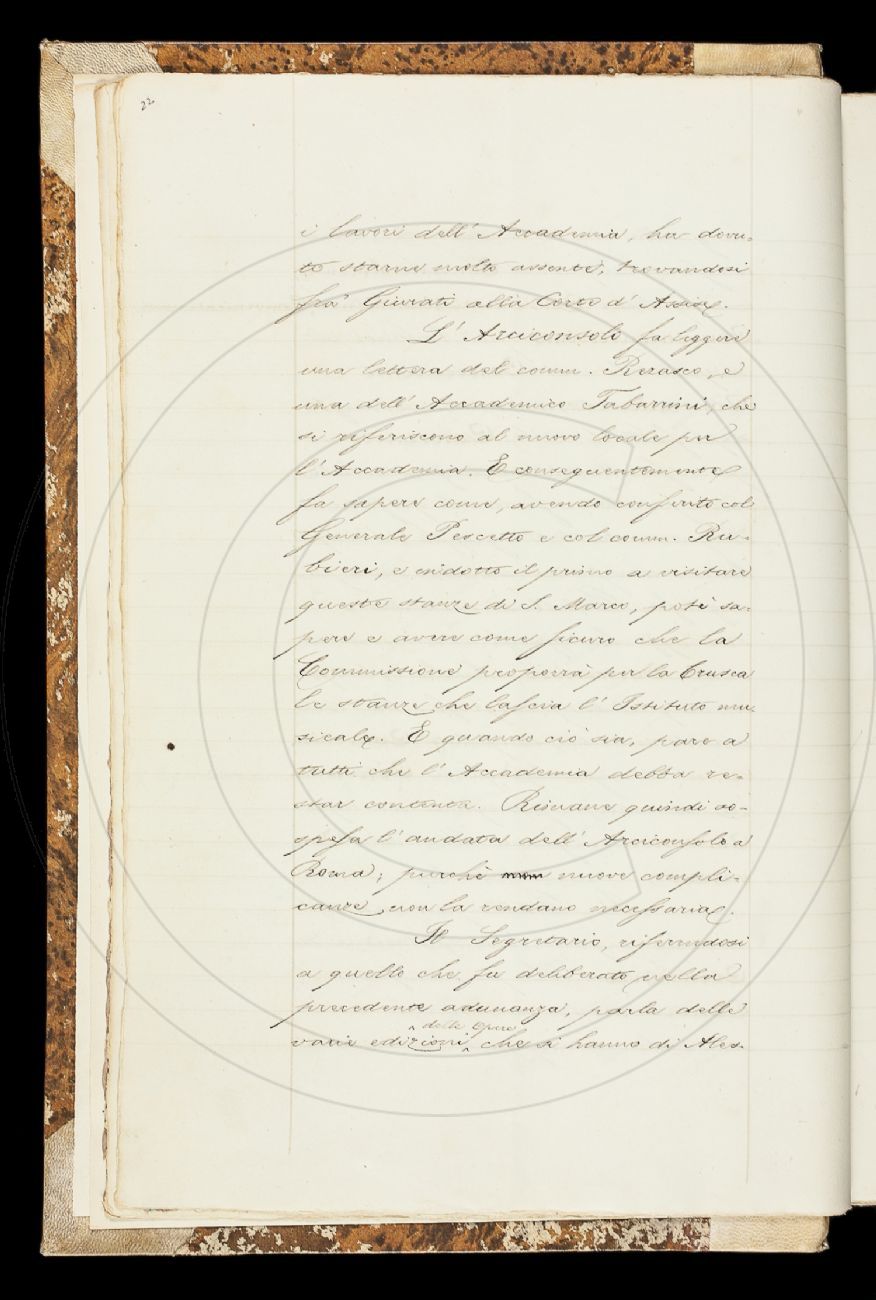 22
i lavori dell'Accademia, ha dovu-
to starne molto assente, trovandosi
fra' Giurati alla Corte d'Assise.
L'Arciconsolo fa leggere
una lettera del comm. Rezasco, e
una dell'Accademico Tabarrini, che
si riferiscono al nuovo locale per
l'Accademia. E conseguentemente
fa sapere come, avendo conferito col
Generale Pescetto e col comm. Ru-
bieri, e indotto il primo a visitare
queste stanze di S. Marco, potè sa-
pere e avere come sicuro che la
Commissione proporrà per la Crusca
le stanze che lascia l'Istituto mu-
sicale. E quando ciò sia, pare a
tutti che l'Accademia debba re-
star contenta. Rimane quindi so-
spesa l'andata dell'Arciconsolo a
Roma; purchè nuove compli-
canze non la rendano necessaria.
Il Segretario, riferendosi
a quello che fu deliberato nella
precedente adunanza, parla delle
varie edizioni delle Opere che si hanno di Ales-